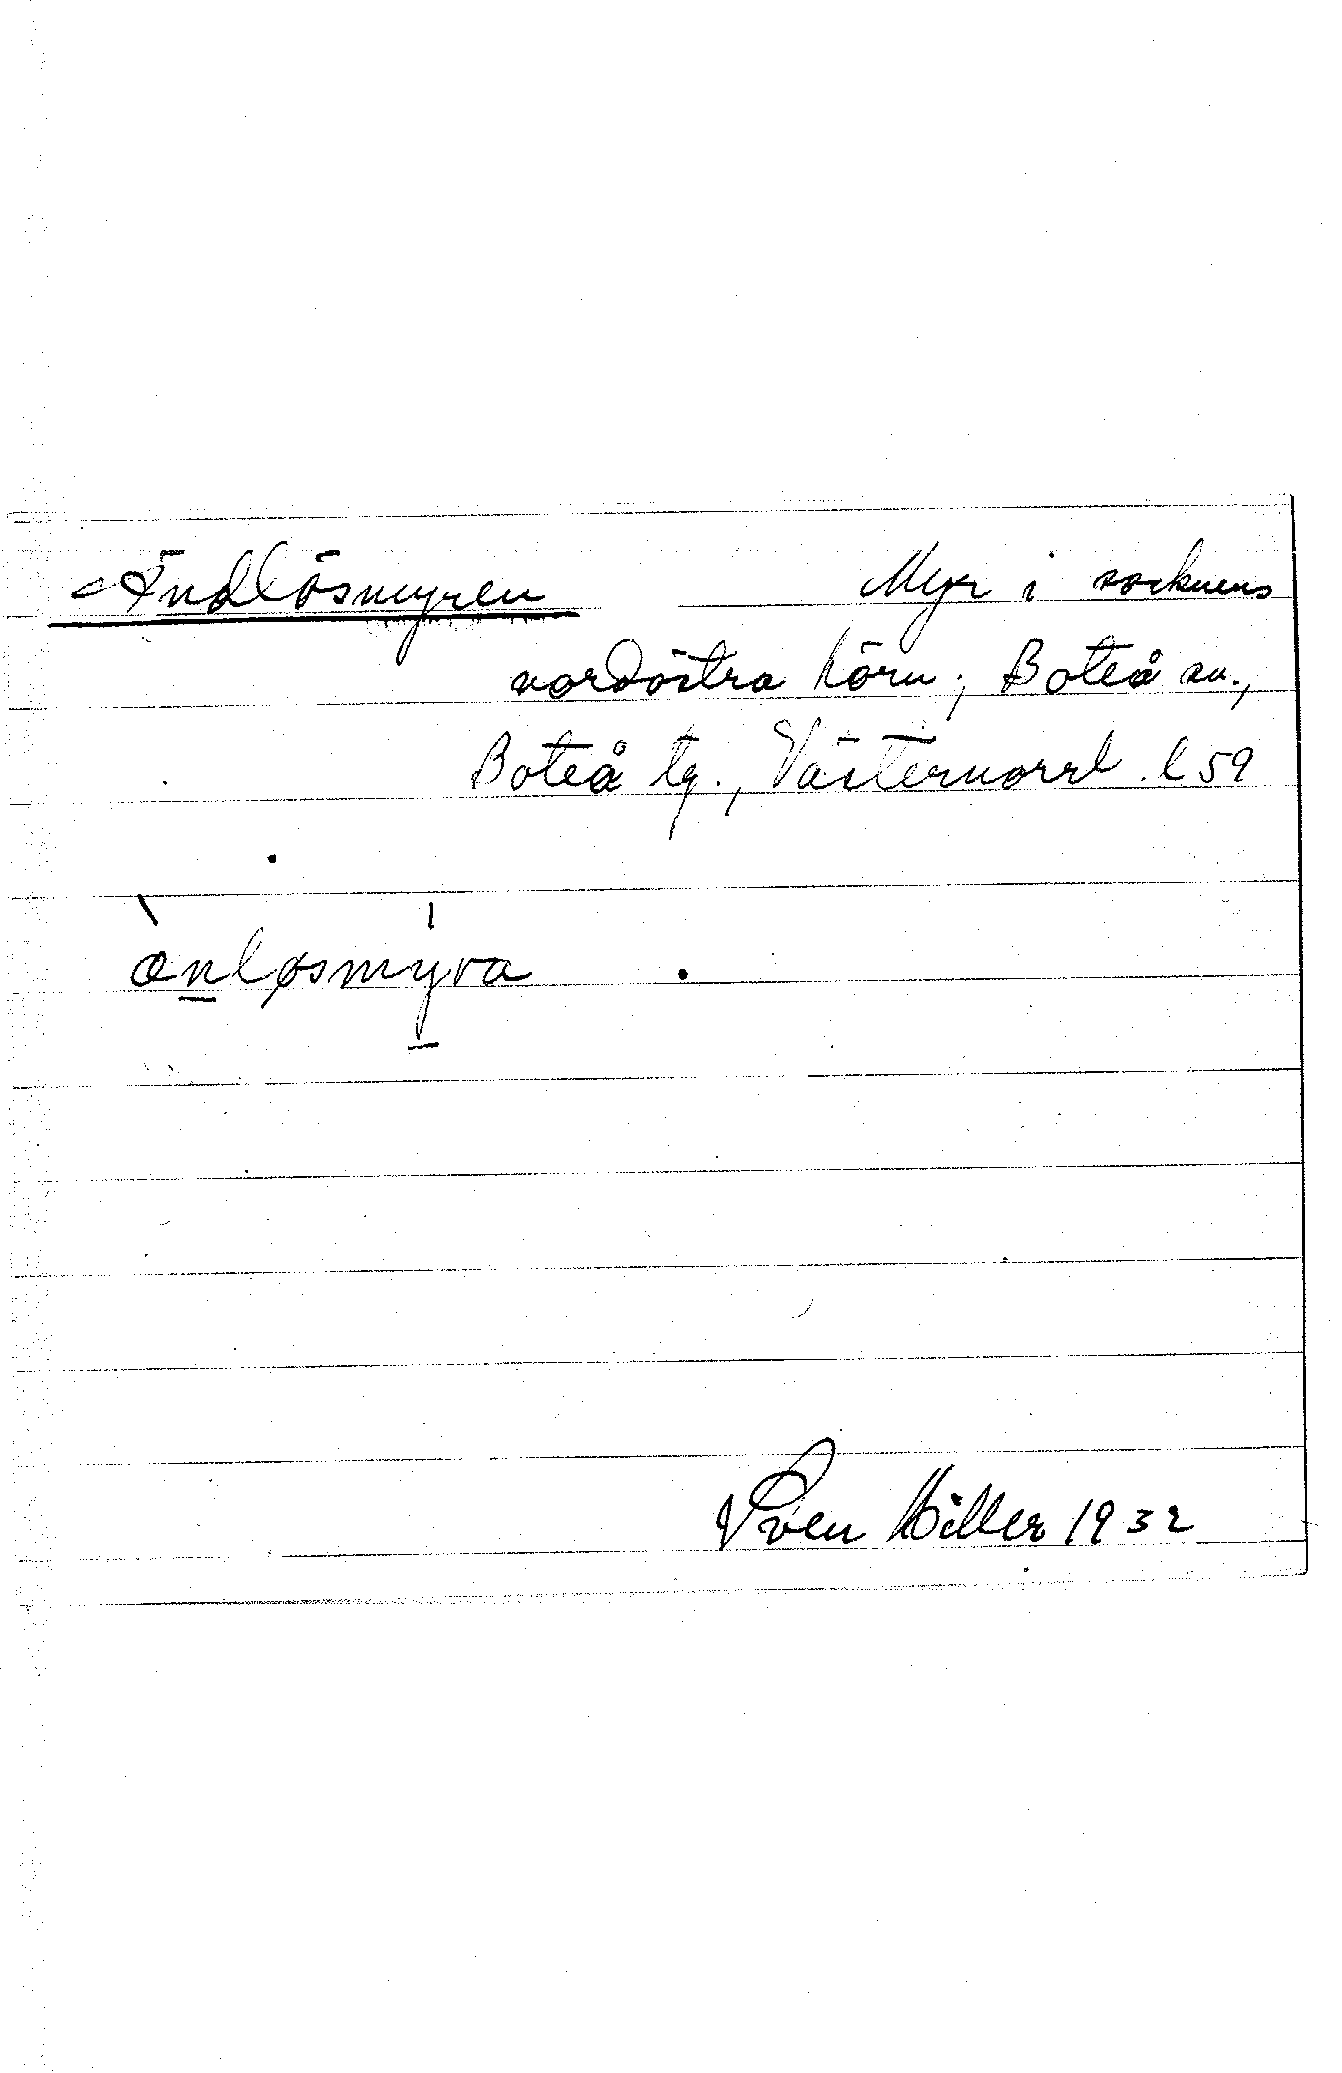 Ändlösmyren Myr i socknens
nordöstra hörn; Boteå sn.,
Boteå tg., Västernorrl. l 59
ænløsmyra
Sven Hiller 1932